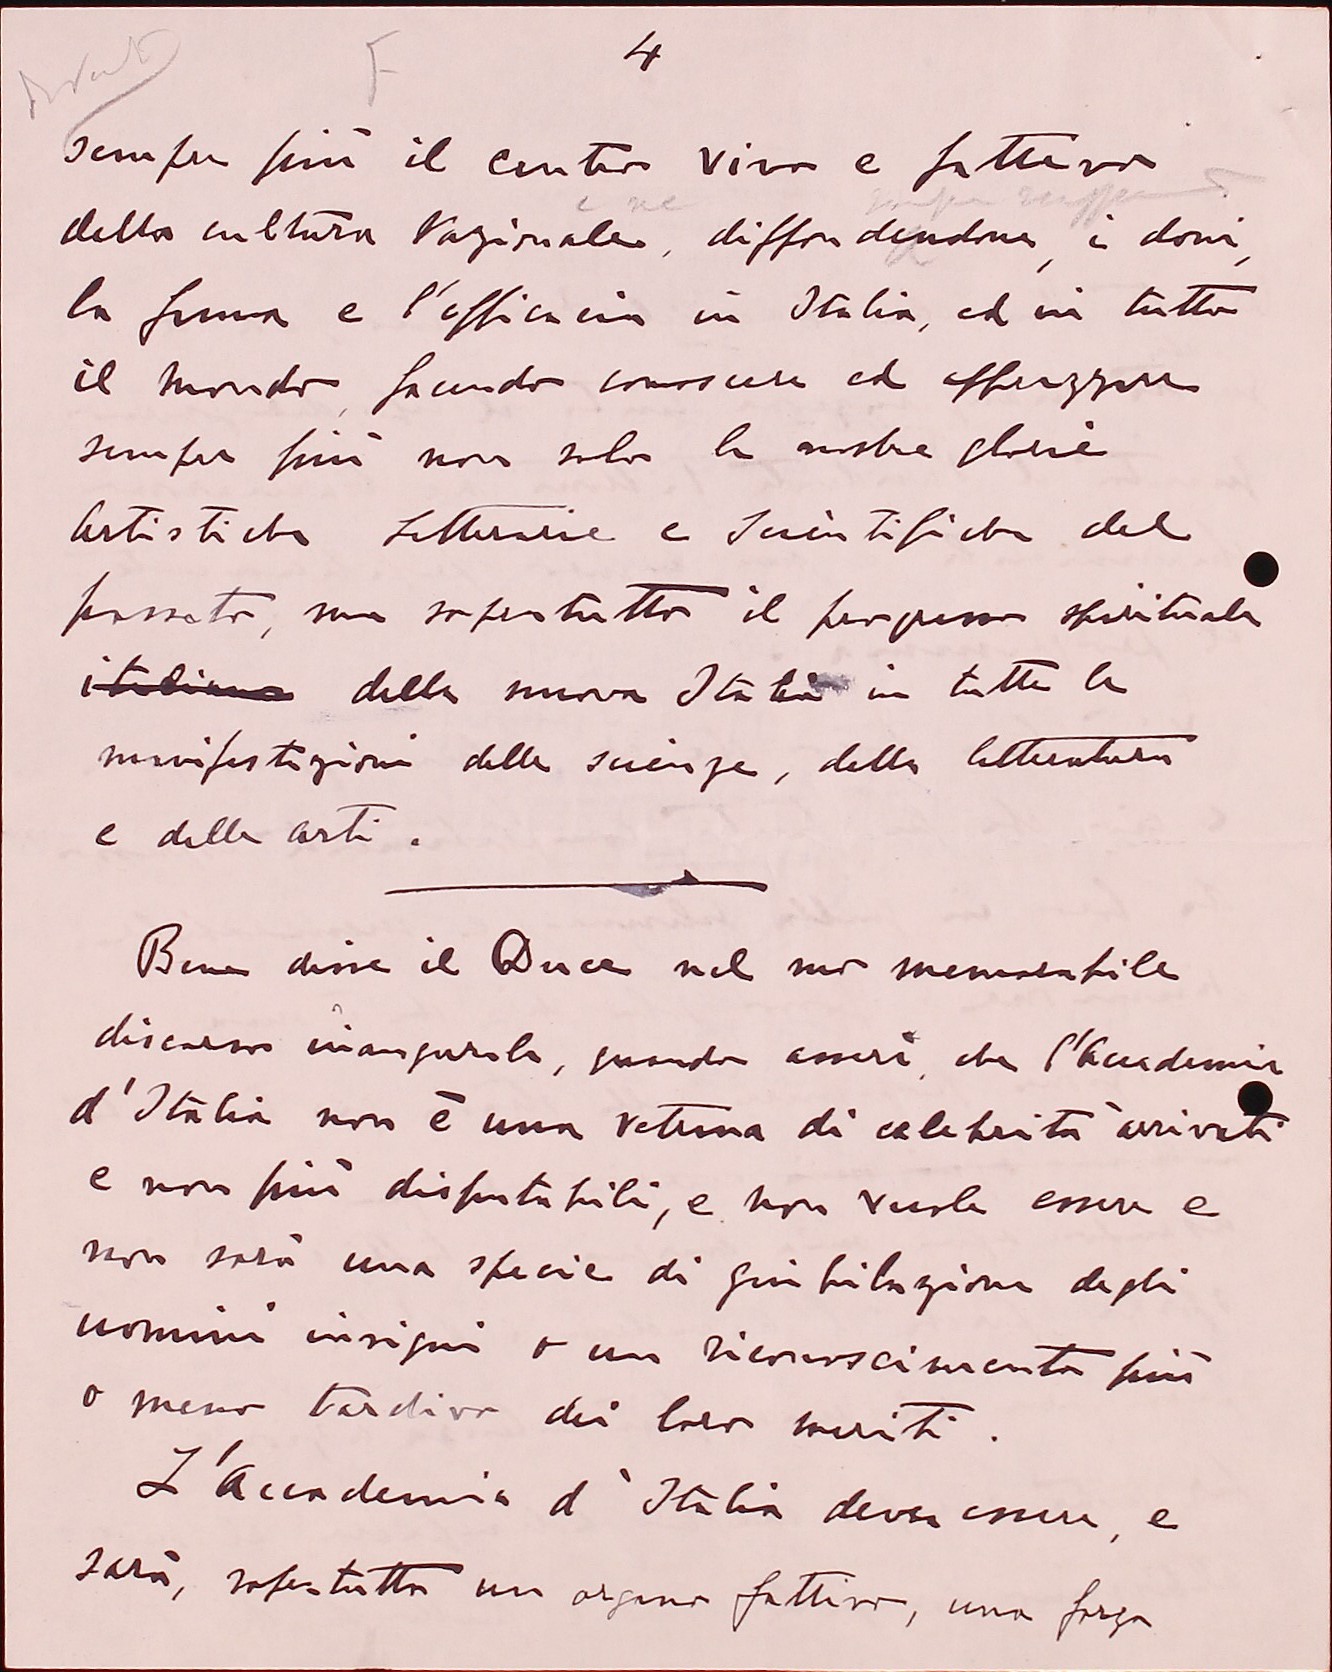 4
F
sempre più il centro vivo e fattivo
della cultura Nazionale, diffondendone, i doni,
e ne
la forma e l'efficacia in Italia, ed in tutto
il mondo, facendo conoscere ed apprezzare
sempre più non solo le nostre glorie
artistiche letterarie e scientifiche del
passato, ma soprattutto il progresso spirituale
italiano della nuova Italia in tutte le
manifestazioni delle scienze, della letteratura
e delle arti.
Bene disse il Duce nel suo memorabile
discorso inaugurale, quando asserì, che l'Accademia
d'Italia non è una vetrina di celebrità arrivate
e non più disputabili, e non vuole essere e
non sarà una specie di giubilazione degli
uomini insigni o un riconoscimento più
o meno tardivo dei loro meriti.
L'Accademia d'Italia deve essere, e
sarà, soprattutto un organo fattivo, una forza